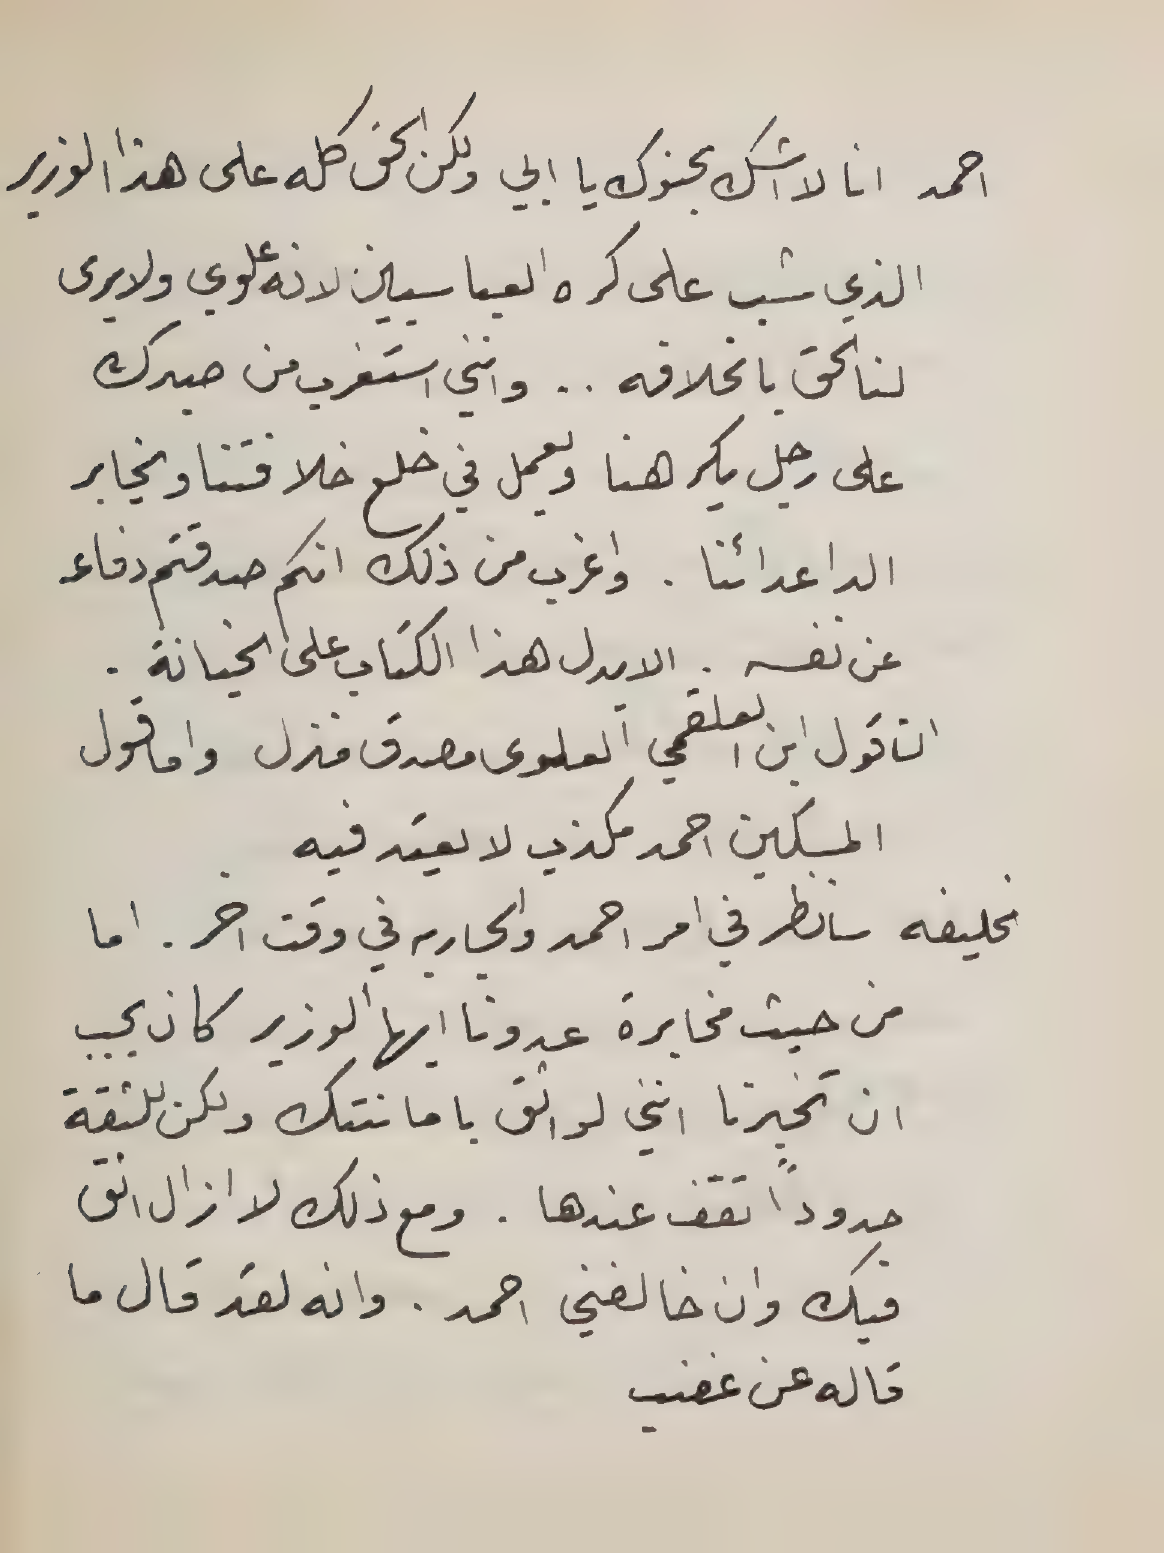 احمد انا لا اشك بحنوك يا ابي ولكن الحق كله على هذا الوزير
الذي شب على كره العباسيين لانه علوي ولا يرى
لنا الحق بالخلافه .. وانني استغرب من صبرك
على رجل يكرهنا ويعمل في خلع خلافتنا ويخابر
الد اعدائنا . واغرب من ذلك انكم صدقتم دفاعه
عن نفسه . الا يدل هذا الكتاب على الخيانة .
ان قول ابن العلقمي العلوى مصدق منزل واما قول
المسكين احمد مكذب لا يعتد فيه
الخليفه سانظر في امر احمد والجاريه في وقت اخر . اما
من حيث مخابرة عدونا ايها الوزير كان يجب
ان تخبرنا انني لواثق بامانتك ولكن للثقة
حدوداً تقف عندها . ومع ذلك لا ازال اثق
فيك وان خالفني احمد . وانه لقد قال ما
قاله عن غضب